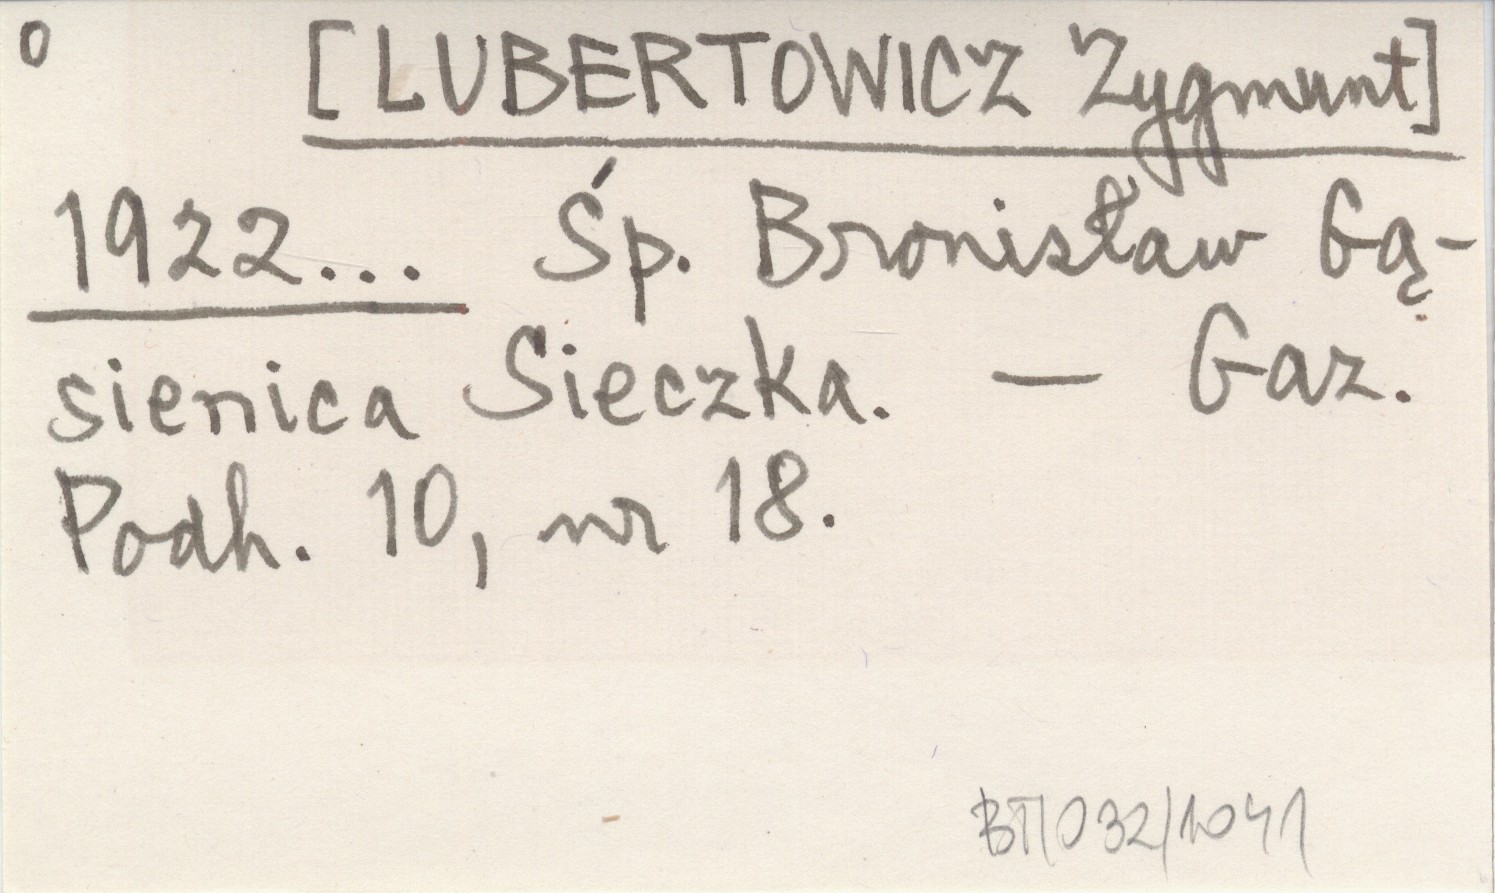 o [LUBERTOWICZ Zygmunt]
1922... Śp. Bronisław Gą-
sienica Sieczka. — Gaz.
Podh. 10, nr 18.
BT/032/1041